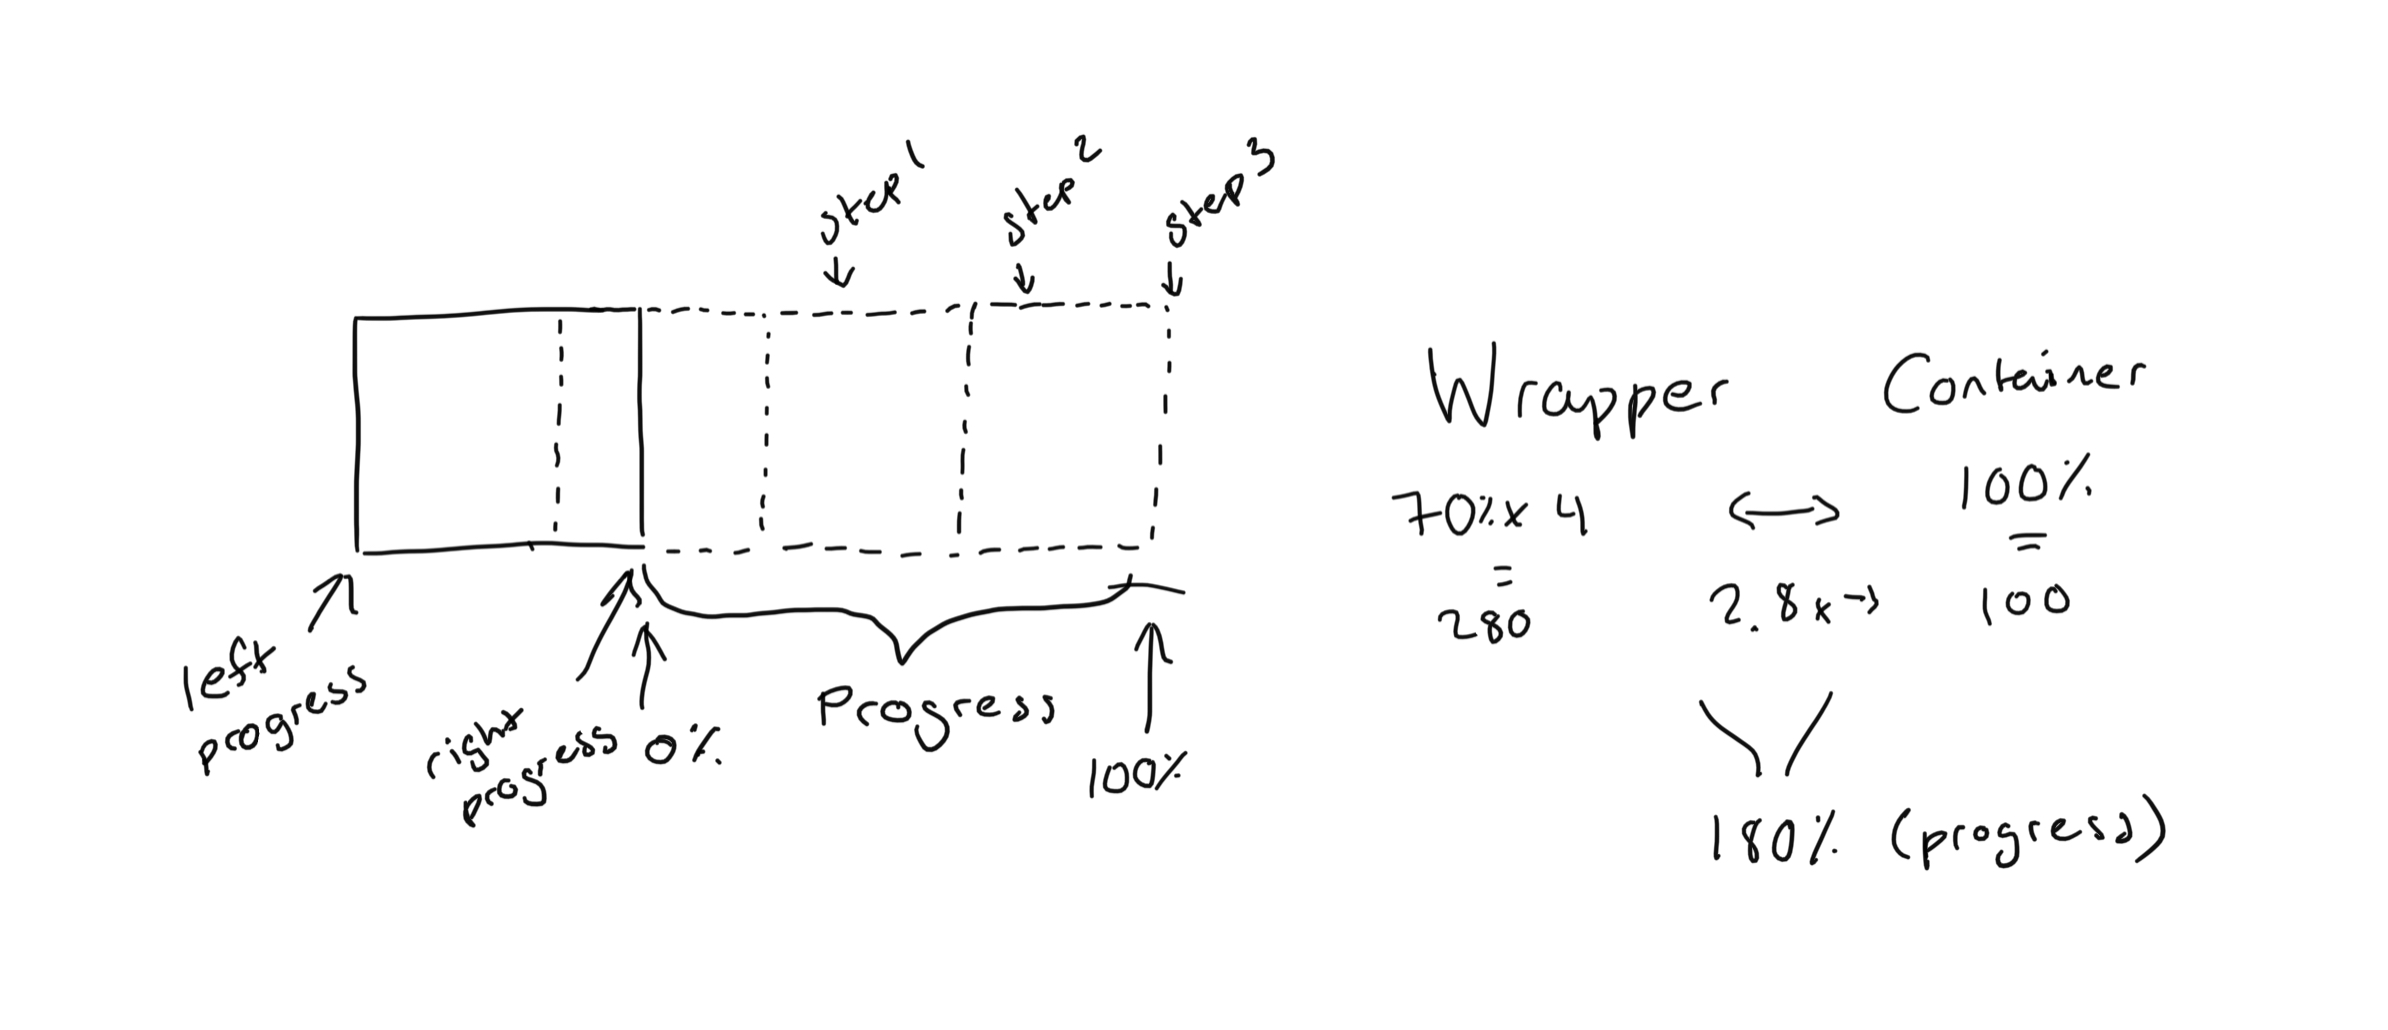 step 1
step 2
step 3
left
progress
right
progress
0%
Progress
100%
Wrapper
Container
70% x 4
100%
=
=
280
2.8x →
100
180% (progress)